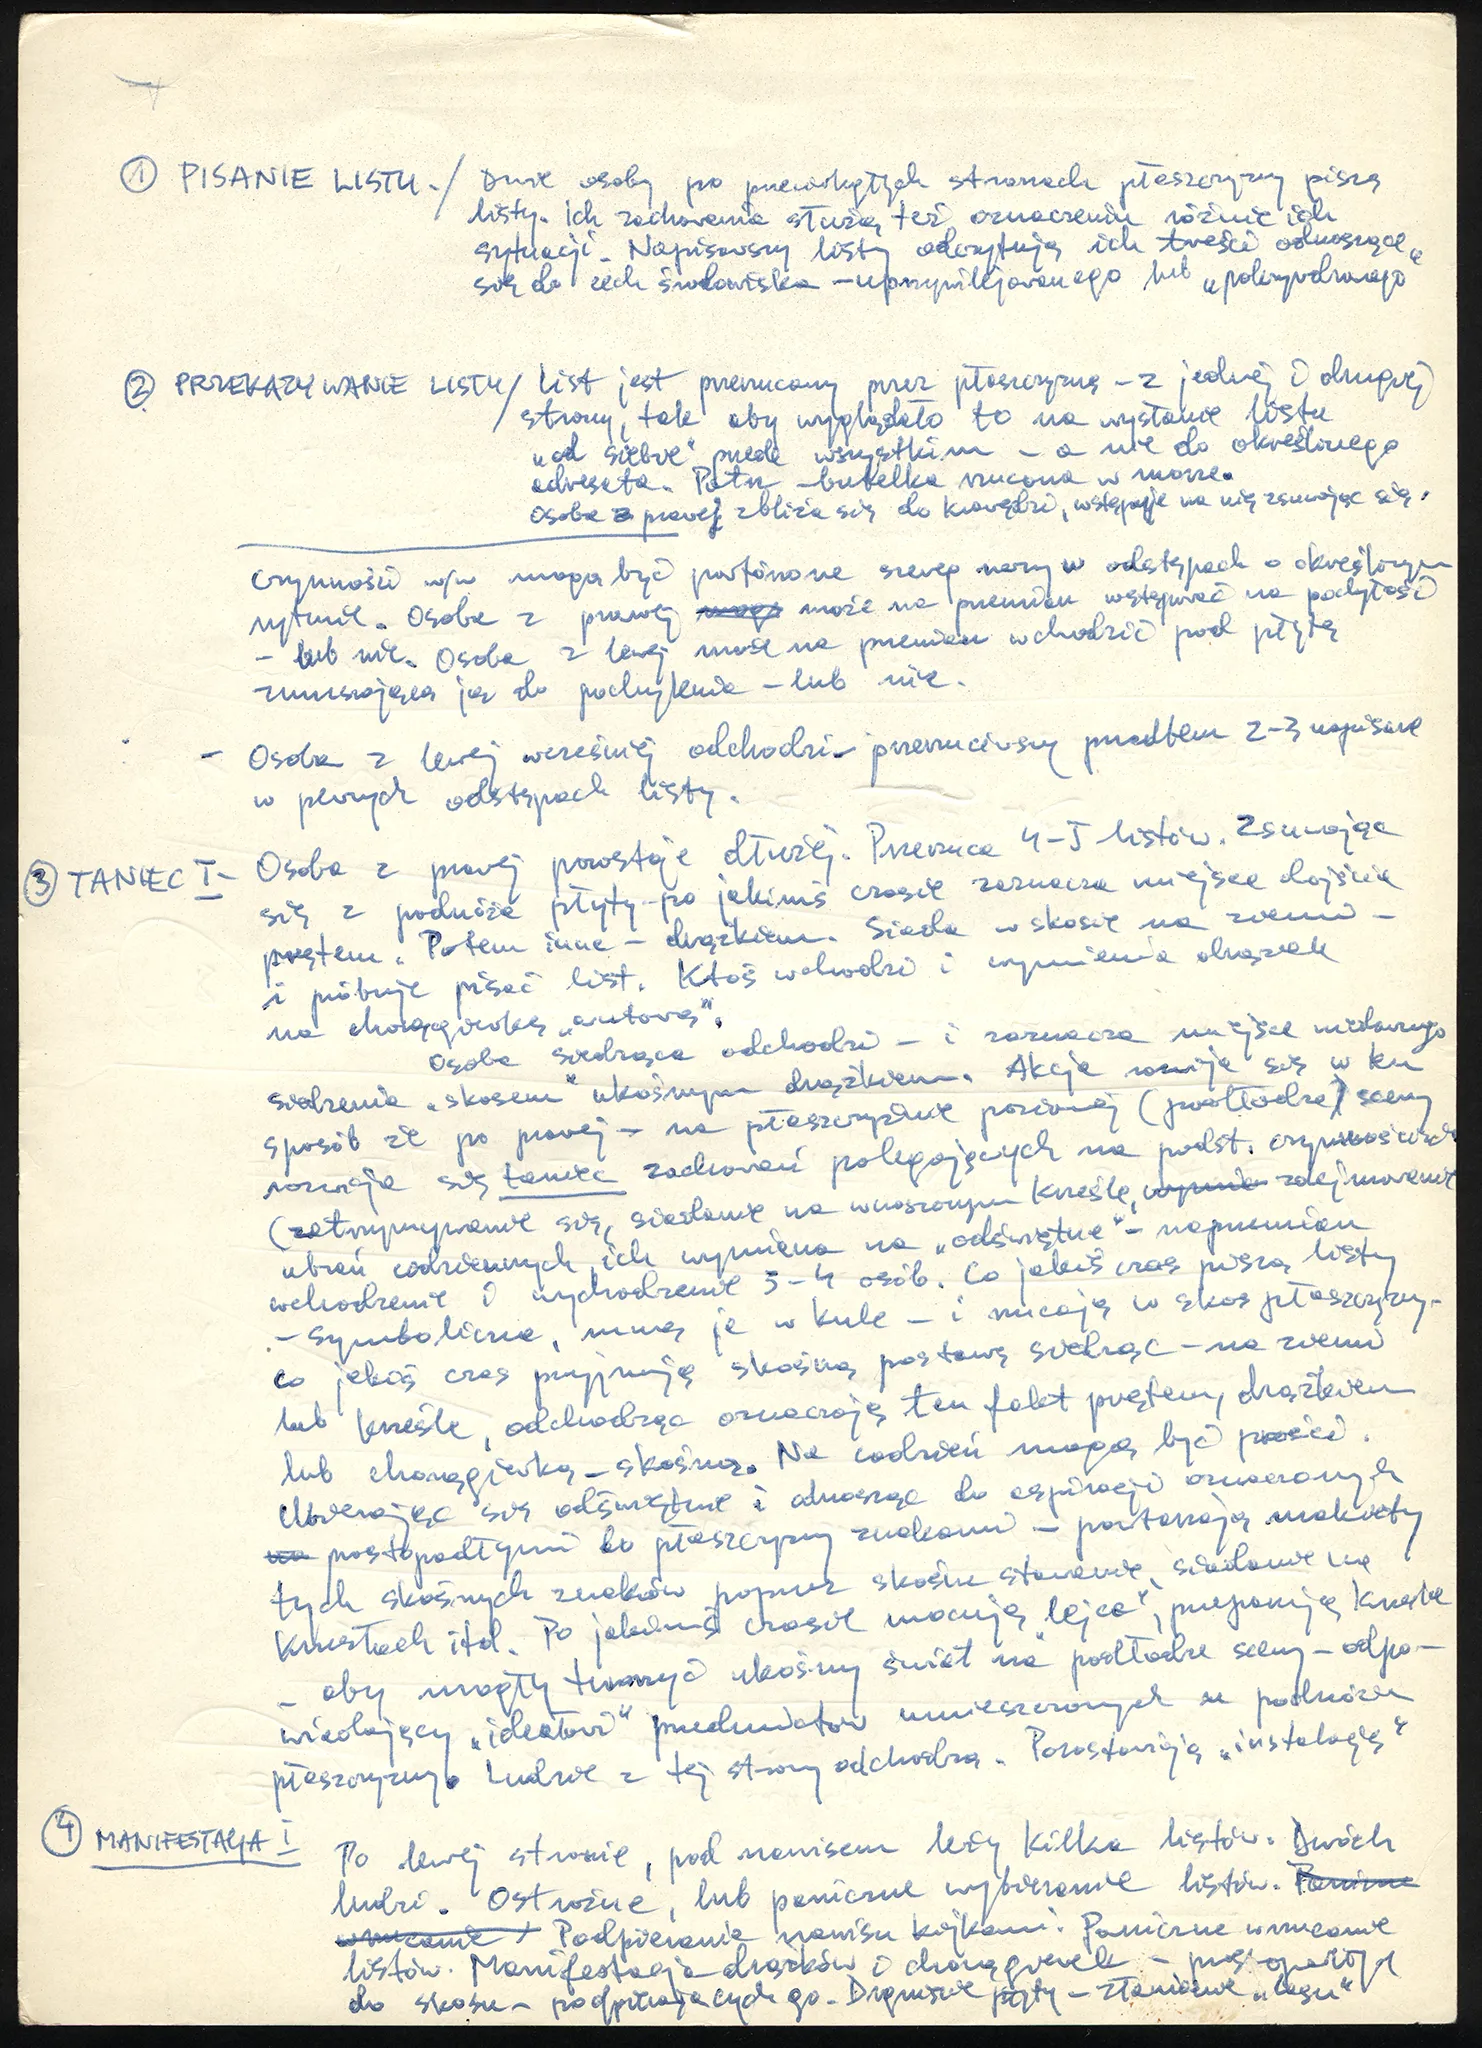 ① PISANIE LISTU. / Dwie osoby po przeciwległych stronach płaszczyzny piszą
listy. Ich zachowania służą też oznaczeniu różnic ich
sytuacji. Napisawszy listy odczytują ich treści odnoszące
się do cech środowiska – uprzywilejowanego lub „pokrzywdzonego”
② PRZEKAZYWANIE LISTU / List jest przerzucany przez płaszczyznę – z jednej i drugiej
strony, tak aby wyglądało to na wysłanie listu
„od siebie” przede wszystkim – a nie do określonego
adresata. Patrz – butelka rzucona w morze.
Osoba z prawej zbliża się do krawędzi, wstępuje na nią zsuwając się.
Czynności w/w mogą być powtórzone szereg razy w odstępach o określonym
rytmie. Osoba z prawej może na przemian wstępować na pochyłość
– lub nie. Osoba z lewej może na przemian wchodzić pod płytę
zmuszającą ją do pochylenia – lub nie.
– Osoba z lewej wcześniej odchodzi – przerzuciwszy przedtem 2–3 napisane
w pewnych odstępach listy.
③ TANIEC I – Osoba z prawej pozostaje dłużej. Przerzuca 4–5 listów. Zsuwając
się z podnóża płyty – po jakimś czasie zaznacza miejsce dojścia
prętem. Potem inne – drążkiem. Siada w skosie na ziemi –
i próbuje pisać list. Ktoś wchodzi i wymienia drążek
na chorągiewkę „autora”.
Osoba siedząca odchodzi – i zaznacza miejsce niedawnego
siedzenia „skosem” ukośnym drążkiem. Akcja rozwija się w ten
sposób że po prawej – na płaszczyźnie poziomej (podłodze) sceny
rozwija się taniec zachowań polegających na podst. czynnościach
(zatrzymywanie się, siadanie na wnoszonym krześle, zdejmowanie
ubrań codziennych, ich wymiana na „odświętne” – naprzemian
wchodzenie i wychodzenie 3–4 osób. Co jakiś czas piszą listy
– symboliczne, zwiną je w kule – i rzucają w skos płaszczyzny –
co jakiś czas przyjmują skośną postawę siedząc – na ziemi
lub krześle, odchodząc oznaczają ten fakt prętem, drążkiem
lub chorągiewką – skośną. Na codzień mogą być prości.
Ubierając się odświętnie i odnosząc do aspiracji oznaczonych
prostopadłymi do płaszczyzny znakami – powtarzają makiety
tych skośnych znaków poprzez skośne stawanie, siadanie na
krzesłach itd. Po jakimś czasie mocują „lejce”, przepinają krzesła
– aby mogły tworzyć ukośny świat na podłodze sceny – odpo-
wiadający „ideałowi” przedmiotów umieszczonych u podnóża
płaszczyzny. Ludzie z tej strony odchodzą. Pozostawiają „instalację”
④ MANIFESTACJA I Po lewej stronie, pod nawisem leży kilka listów. Dwóch
ludzi. Ostrożne, lub paniczne wybieranie listów. Paniczne
wrzucanie / Podpieranie nawisu kijkami. Paniczne wrzucanie
listów. Manifestacja drążków i chorągiewek – prostopadłych
do skosu – podpierających go. Drgnięcie płyty – złamanie „lasu”